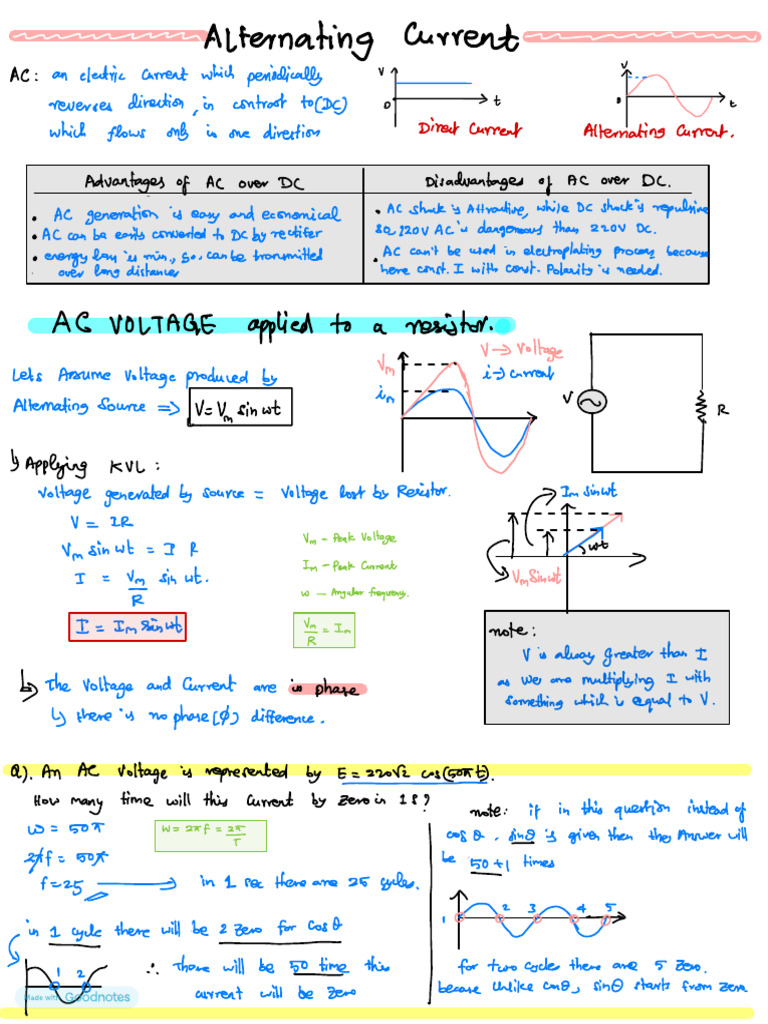 Alternating Current
AC: an electric current which periodically
reverses direction, in contrast to (DC)
which flows only in one direction
V
O
t
Direct Current
V
0
t
Alternating Current.
Advantages of AC over DC
• AC generation is easy and economical
• AC can be easily converted to DC by rectifer
• energy loss is min., so, can be transmitted
over long distances
Disadvantages of AC over DC.
• AC shock is Attractive, while DC shock is repulsive
so 220V AC is dangerous than 220V DC.
• AC can't be used in electroplating process because
here const. I with const. Polarity is needed.
AC VOLTAGE applied to a resistor.
Lets Assume Voltage produced by
Alternating Source => V = Vm sin wt
Vm
im
V → Voltage
i → current
V
R
↳ Applying KVL:
Voltage generated by source = Voltage lost by Resistor.
V = IR
Vm sin wt = I R
I = Vm/R sin wt.
I = Im sin wt
Vm - Peak Voltage
Im - Peak Current
w - Angular frequency.
Vm/R = Im
Im sin wt
wt
Vm sin wt
note:
V is alway greater than I
as we are multiplying I with
something which is equal to V.
↳ The Voltage and Current are in phase
↳ there is no phase (ϕ) difference.
Q). An AC Voltage is represented by E = 220√2 cos(50πt).
How many time will this current by zero in 1s?
w = 50π
2πf = 50π
f = 25 → in 1 sec there are 25 cycles.
W = 2πf = 2π/T
in 1 cycle there will be 2 zero for cosθ
1 2
∴ There will be 50 time this
current will be zero
note: if in this question instead of
cosθ, sinθ is given then the Answer will
be 50+1 times
1 2 3 4 5
for two cycles there are 5 zero.
because unlike cosθ, sinθ starts from zero
Made with Goodnotes